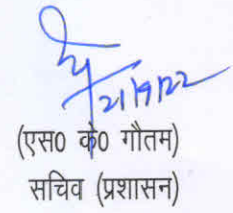 21/9/22
(एस० के० गौतम)
सचिव (प्रशासन)